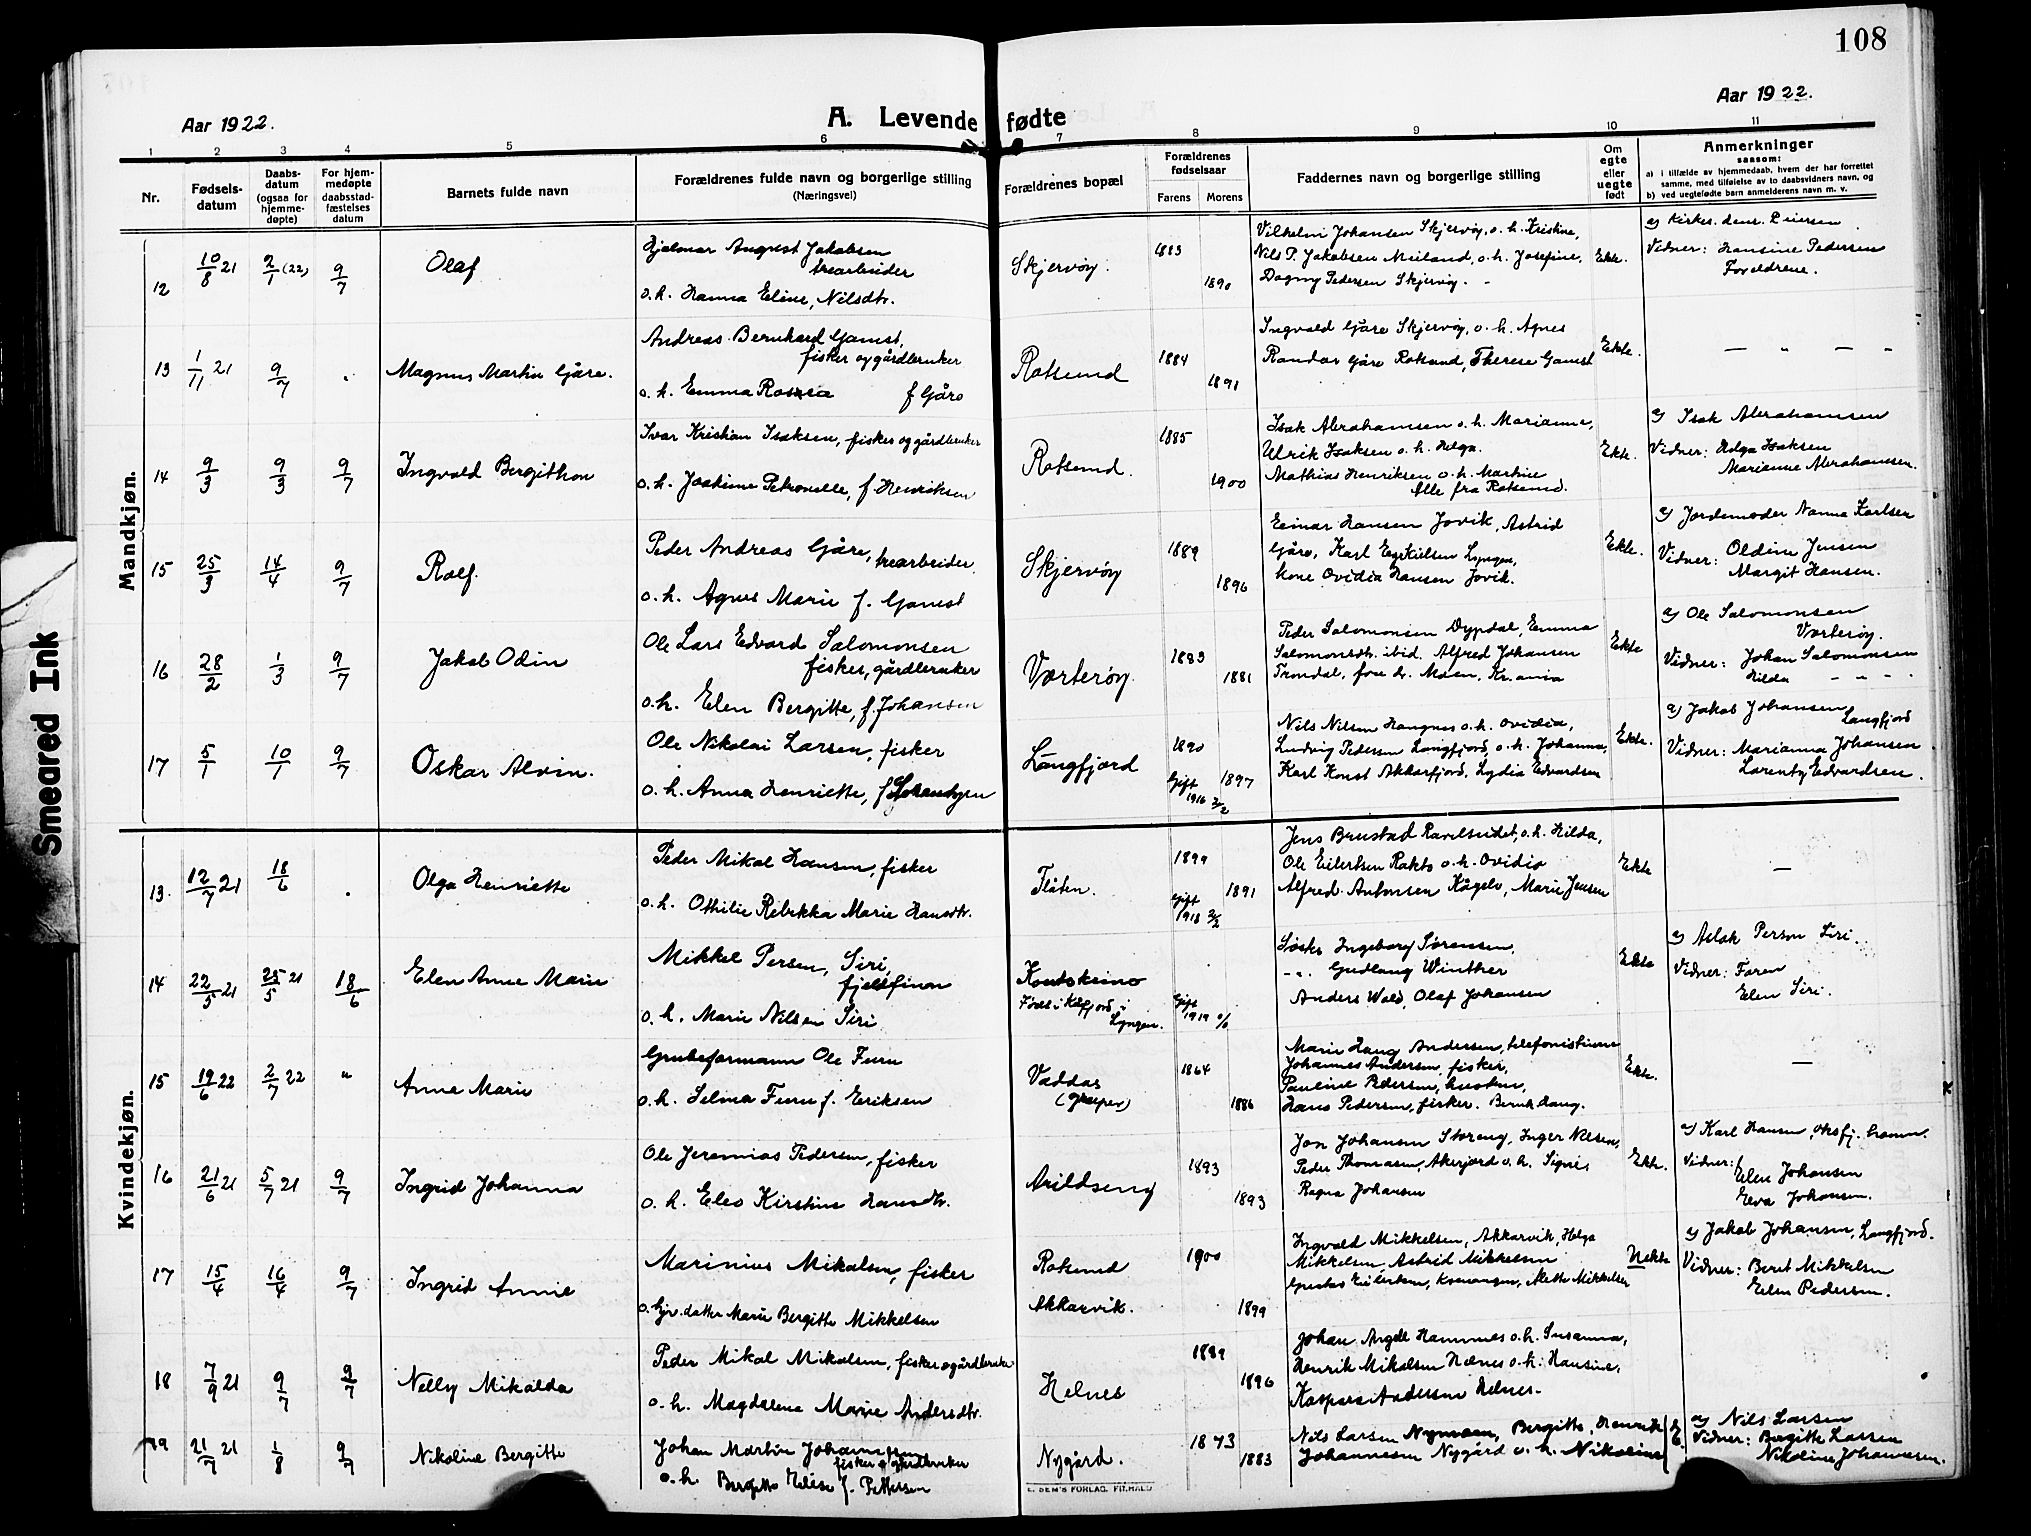 108
Aar 1922.
A. Levende fødte
Aar 1922.
1 2 3 4 5 6 7 8 9 10 11
Nr.
Fødsels-datum
Daabs-datum (ogsaa for hjemme-døpte)
For hjem-medøpte daabsstad-fæstelses datum
Barnets fulde navn
Forældrenes fulde navn og borgerlige stilling
(Næringsvei)
Forældrenes bopæl
Forældrenes fødselsaar
Farens Morens
Faddernes navn og borgerlige stilling
Om egte eller uegte født
Anmerkninger
saasom:
a) i tilfælde av hjemmedaab, hvem der har forrettet samme, med tilføielse av to daabsvidners navn, og
b) ved uegtefødte barn anmelderens navn m. v.
Mandkjøn.
12 10/8 21 2/1 (22) 9/7 Olaf
Hjalmar August Jakobsen
trearbeider
o.h. Hanna Eline, Nilsdtr.
Skjervøy. 1883 1890
Vilhelm Johansen Skjervøy, o.h. Kristine,
Nils P. Jakobsen Meiland, o.h. Josefine,
Dagny Pedersen Skjervøy. -
Ekte.
a) Kirkes. dens.
Vidner: Hansine Pedersen
Foreldrene.
13 1/11 21 9/7 Magnus Martin Gåre.
Andreas Bernhard Gamst,
fisker og gårdbruker
o.h. Emma f Gåre
Rotsund 1884 1891
Ingvald Gåre Skjervøy, o.h. Agnes
Randar Gåre Rotsund, Therese Gamst
Ekte.
14 9/3 9/3 9/7 Ingvald Bergithon
Ivar Kristian Isaksen, fisker og gårdbruker
o.h. Joakime Petronelle, f. Henriksen
Rotsund. 1885 1900
Isak Abrahamsen o.h. Marianne,
Ulrik Isaksen o.h. Helga.
Mathias Henriksen o.h. Martine
Alle fra Rotsund.
Ekte.
a) Isak Abrahamsen
Vidner: Helga Isaksen
Marianne Abrahamsen.
15 25/3 14/4 9/7 Rolf.
Peder Andreas Gåre, trearbeider.
o.h. Agnes Marie f. Gamst
Skjervøy 1889 1896
Einar Hansen Jovik, Astrid
Gåre, Karl Esekielsen Lyngen,
kone Ovidia Hansen Jovik.
Ekte.
a) Jordemoder Nanna Karlsen
Vidner: Oldine Jensen
Margit Hansen.
16 28/2 1/3 9/7 Jakob Odin
Ole Lars Edvard Salomonsen
fisker, gårdbruker
o.h. Elen Bergitte, f. Johansen
Vorterøy 1883 1881
Peder Salomonsen Dypdal, Emma
Salomonsdtr. ibid. Alfred Johansen
Trondal, Moen, Kr.ania
Ekte
a) Ole Salomonsen
Vorterøy.
Vidner: Johan Salomonsen
Hilda - - - -
17 5/1 10/1 9/7 Oskar Alvin.
Ole Nikolai Larsen, fisker
o.h. Anna Henriette, f.
Langfjord 1890 1897
Gift 1916 2/2
Nils Nilsen Hangnes o.h. Ovidia,
Ludvig Pedersen Langfjord o.h. Johanna,
Karl Konst Akkarfjord, Lydia Edvardsen
Ekte.
a) Jakob Johansen Langfjord
Vidner: Marianna Johansen
Lorentz Edvardsen.
Kvindekjøn.
13. 12/7 21 18/6 Olga Henriette
Peder Mikal Hansen, fisker
o.h. Othilie Rebekka Marie Hansdtr.
Flåten. 1899 1891
Gift 1918 2/2
Jens Brustad Ravelseidet, o.h. Hilda,
Ole Eilertsen Rakto o.h. Ovidia
Alfred Antonsen Kågelv, Marie Jensen
Ekte
14 22/5 21 25/5 21 18/6 Elen Anne Marie
Mikkel Persen, Siri,
fjellfinn
o.h. Marie Nilsen Siri
Koutokeino
Født i Kåfjord i Lyngen.
Gift 1919
Søster Ingeborg Sørensen,
-"- Gudlaug Winther
Anders Wald, Olaf Johansen
Ekte
a) Aslak Person Siri.
Vidner: Faren
Elen Siri.
15 19/6 22 2/7 22 " Anna Marie
Grubeformann Ole Furu
o.h. Selma Furu f. Eriksen
Vaddas
(gruper) 1864 1886
Marie Haug Andersen, telefonistinne
Johannes Andersen, fisker,
Pauline Pedersen, hustru,
Hans Pedersen, fisker. Bernh. Haug.
Ekte.
16 21/6 21 5/7 21 9/7 Ingrid Johanna
Ole Jeremias Pedersen, fisker
o.h. Elea Kirstine Hansdtr.
Arildseng 1893 1893
Jon Johansen Storeng, Inger Nilsen,
Peder Thomassen, Akerjord o.h. Signe,
Ragna Johansen
Ekte.
a) Karl Hansen, Oksfj. hamn.
Vidner: Elen Johansen
Eva Johansen.
17 15/4 16/4 9/7 Ingrid Annie
Marinius Mikalsen, fisker
o. Gjv. datter Marie Bergitte Mikkelsen
Rotsund
Akkarvik. 1900 1899
Ingvald Mikkelsen, Akkarvik, Helga
Mikkelsen, Astrid Mikkelsen
Gustav Eilertsen, Kvenangen, Mette Mikkelsen
Uekte
a) Jakob Johansen, Langfjord.
Vidner: Beret Mikkelsen
Elen Pedersen.
18 7/9 21 9/7 9/7 Nelly Mikalda
Peder Mikal Mikalsen, fisker og gårdbruker
o.h. Magdalena Marie Andersdtr.
Helnes 1889 1896
Johan Angell Hamnnes o.h. Susanna,
Henrik Mikalsen Helnes o.h. Hansine,
Kaspara Andersen Helnes.
19 21/7 21 1/8 9/7 Nikoline Bergitte
Johan Martin Johannessen
fisker og gårdbruker
o.h. Bergitte Elise f. Pettersen
Nygård. 1873 1883
Nils Larsen Nymoen, Bergitte, Henrik
Johannesen Nygård o.h. Nikoline
E.
a) Nils Larsen
Vidner: Bergitte Larsen
Nikoline Johannesen.
E. SEM'S FORLAG. FR.HALD
Smeared Ink